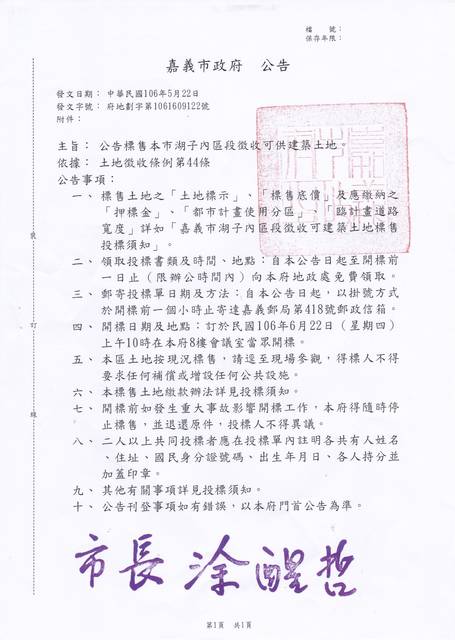 檔　　號：
保存年限：
嘉義市政府　公告
發文日期：中華民國106年5月22日
發文字號：府地劃字第1061609122號
附件：
主旨：公告標售本市湖子內區段徵收可供建築土地。
依據：土地徵收條例第44條
公告事項：
一、標售土地之「土地標示」、「標售底價」及應繳納之
「押標金」、「都市計畫使用分區」、「臨計畫道路
寬度」詳如「嘉義市湖子內區段徵收可建築土地標售
投標須知」。
二、領取投標書類及時間、地點：自本公告日起至開標前
一日止（限辦公時間內）向本府地政處免費領取。
三、郵寄投標單日期及方法：自本公告日起，以掛號方式
於開標前一個小時止寄達嘉義郵局第418號郵政信箱。
四、開標日期及地點：訂於民國106年6月22日（星期四）
上午10時在本府8樓會議室當眾開標。
五、本區土地按現況標售，請逕至現場參觀，得標人不得
要求任何補償或增設任何公共設施。
六、本標售土地繳款辦法詳見投標須知。
七、開標前如發生重大事故影響開標工作，本府得隨時停
止標售，並退還原件，投標人不得異議。
八、二人以上共同投標者應在投標單內註明各共有人姓名
、住址、國民身分證號碼、出生年月日、各人持分並
加蓋印章。
九、其他有關事項詳見投標須知。
十、公告刊登事項如有錯誤，以本府門首公告為準。
市長 涂醒哲
第1頁　共1頁
裝
訂
線